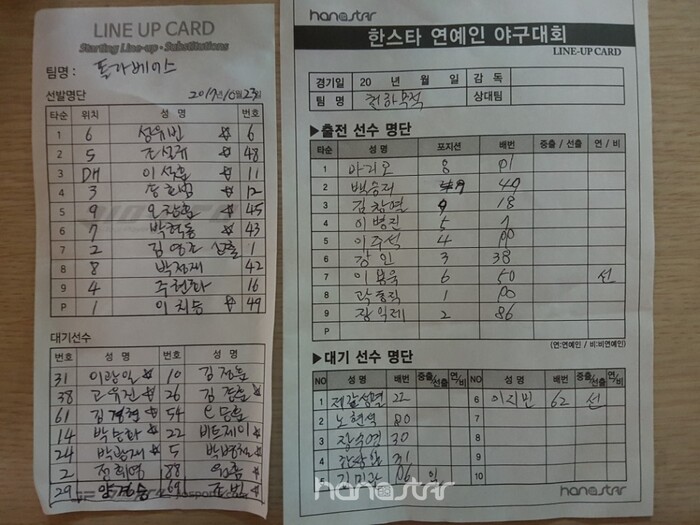 LINE UP CARD
Starting Line-up · Substitutions
팀명 : 돌아베이스
선발명단 2017년 10월 23일
타순 위치 성 명 번호
1 6 성유빈 ☆ 6
2 5 조성규 ☆ 48
3 DH 이석훈 ☆ 11
4 3 ☆ 12
5 9 오창훈 ☆ 45
6 7 박혁동 ☆ 43
7 2 김영근 1
8 8 박정재 42
9 4 주현화 16
P 1 ☆ 49
대기선수
번호 성 명 번호 성 명
31 이광일 ☆ 10
38 고유진 ☆ 26 김경훈 ☆
61 김경현 ☆ 54
14 ☆ 22 비트제이 ☆
24 박광재 ☆ 5 ☆
2 정희영 88 ☆
29 ☆ 69 조빈 ☆
hanostar
한스타 연예인 야구대회
LINE-UP CARD
경기일 20 년 월 일 감 독
팀 명 천하무적 상대팀
▶출전 선수 명단
타순 성 명 포지션 배번 중출 / 선출 연 / 비
1 마리오 8 01
2 백승재 49
3 김창열 9 18
4 이병진 5 7
5 이주석 4 00
6 강인 3 38
7 이봉욱 6 50 선
8 곽홍직 1 00
9 장익제 2 86
P
(연:연예인 / 비:비연예인)
▶대기 선수 명단
NO 성 명 배번 중출/선출 연/비 NO 성 명 배번 중출/선출 연/비
1 제갈성렬 22 6 이지빈 62 선
2 노현석 80 7
3 장수영 30 8
4 31 9
5 06 10
hanostar
hanostar